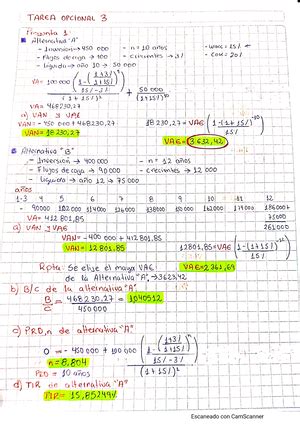 TAREA OPCIONAL 3
Pregunta 1
Alternativa "A"
- Inversión → 450 000 - n = 10 años - WACC = 15%
- Flujos de caja → 100 - crecientes → 3% - COK = 20%
- liquida → año 10 → 50 000
VA = 100 000 (1 - (1+3% / 1+15%)^n / 15% - 3%) / (1+15%)² + 50 000 / (1+15%)^10
VA = 468 230,27
a) VAN y VAE
VAN = - 450 000 + 468230,27 18 230,27 = VAE (1 - (1+15%)^-10 / 15%)
VAN = 18 230,27 VAE = 3 632,42
Alternativa "B"
- Inversión → 400 000 - n = 12 años
- Flujos de caja → 90 000 - crecientes → 12 000
- liquida → año 12 → 75 000
años
1-3 4 5 6 7 8 9 10 11 12
- 90000 102 000 114000 126 000 138000 150 000 162000 174000 186000 +
VA = 412 801,85 75000
a) VAN y VAE 261000
VAN = - 400 000 + 412 801,85
VAN = 12 801,85 12801,85 = VAE (1 - (1+15%)^-12 / 15%)
VAE = 2 361,69
Rpta: Se elige el mayor VAE,
de la Alternativa "A" → 3623,42
b) B/C de la alternativa "A"
B/C = 468 230,27 / 450 000 = 1,040512
c) PRD, n de alternativa "A"
0 = - 450 000 + 100 000 (1 - (1+3% / 1+15%)^n / 15% - 3%) / (1+15%)²
n = 8,804
PRD = 10 años
d) TIR de alternativa "A"
TIR = 15,85249%
Escaneado con CamScanner